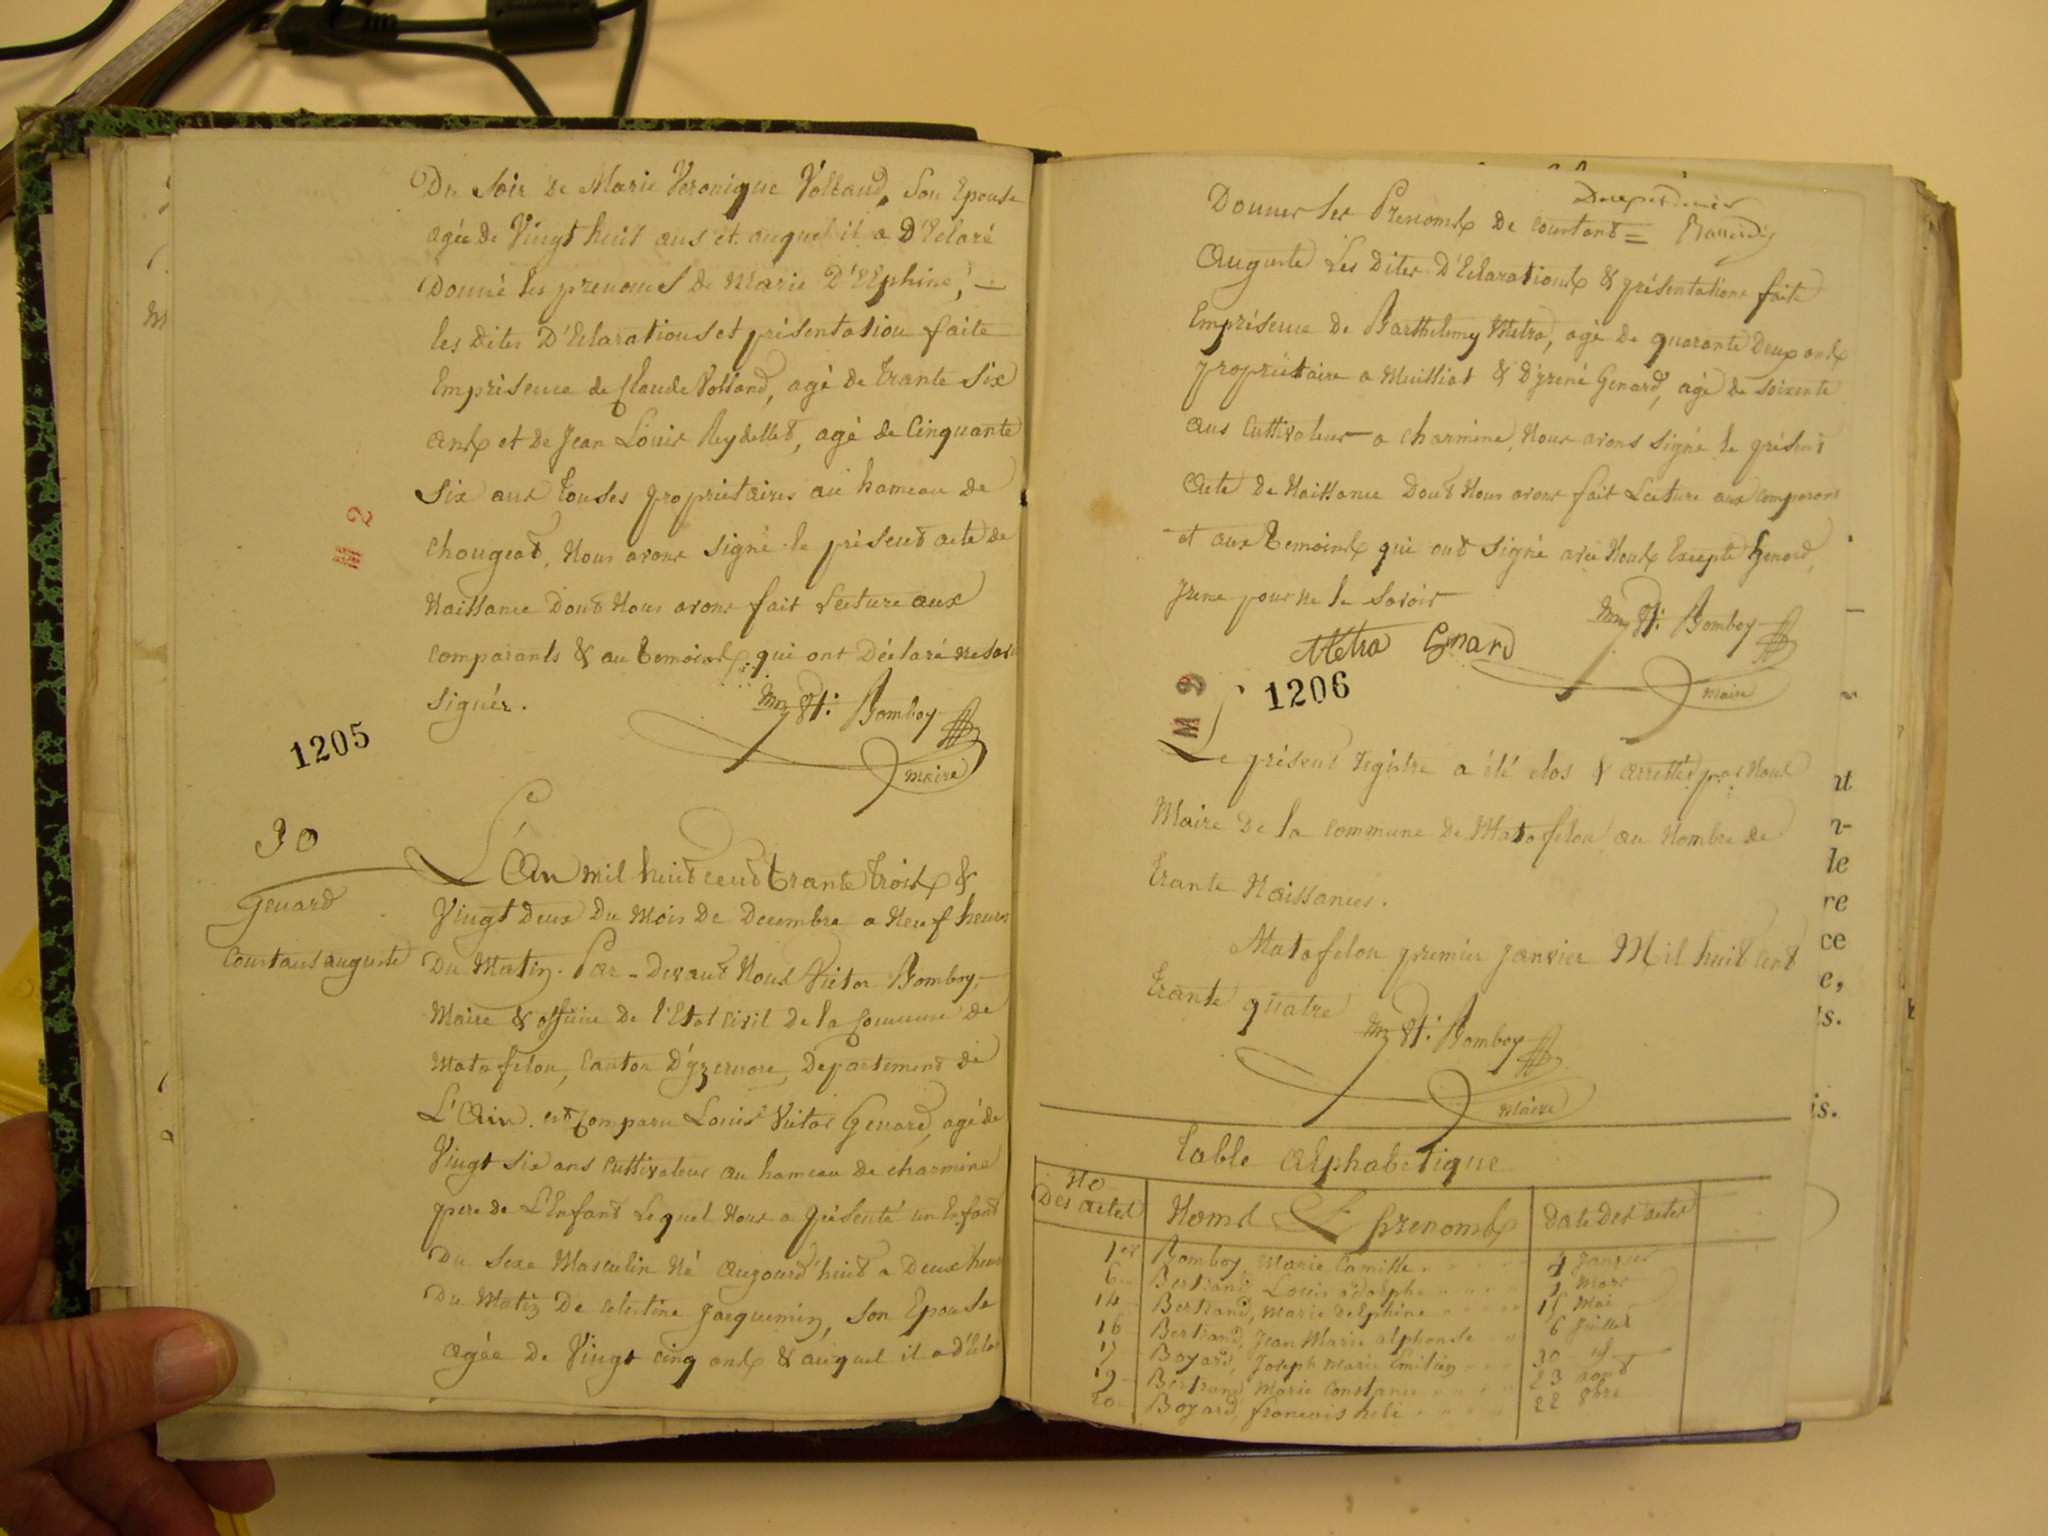 Du Soir de Marie Veronique Volland, Son Epouse
agée de Vingt huit ans et auquel il a D'Eclaré
Donné les prenoms de Marie D'Elphine, —
les Dites D'Eclarations et présentation faite
Emprésence de Claude Volland, agé de Trante Six
ans et de Jean Louis Reydellet, agé de Cinquante
Six ans Touses proprietaires au hameau de
Chougeat, Nous avons Signé le présent acte de
Naissance Dont Nous avons fait Lecture aux
Comparants & au Temoins qui ont Déclaré ne Savoir
Signér.
Vr. Bomboy
Maire
M 2
1205
30
Genard
Constant auguste
L'An mil huit cent trante trois &
Vingt Deux Du Mois De Decembre a Neuf heures
Du Matin. Par-Devant Nous Victor Bomboy,
Maire & officier de l'Etat Civil De la Commune de
Matafelon, Canton D'yzernore, Département de
L'Ain. est Comparu Louis Victor Genard, agé de
Vingt Six ans Cultivateur au hameau de Charmine
pere de L'Enfant Lequel Nous a présenté un Enfant
Du Sexe Masculin Né aujourd'huit a Deux heures
Du Matin De Celestine Jacquemin, Son Epouse
agée De Vingt cinq ans & auquel il a d'Eclaré
Donner les Prenoms De Constant =
Auguste Les Dites D'Eclarations & présentations faite
Emprésence De Barthelemy Métra, agé De quarante Deux ans
propriétaire a Muilliat & D'yrené Genard, agé De Soixente
ans Cultivateur a Charmine, Nous avons Signé le présent
Acte De Naissance Dont Nous avons fait Lecture aux Comparans
et aux Temoins qui ont Signé avec Nous Excepté Genard,
yrene pour Ne le Savoir
Métra Genard
Vr. Bomboy
Maire
M 3
1206
Le présent Registre a été clos & arretté par Nous
Maire De la Commune De Matafelon au Nombre de
Trante Naissances.
Matafelon premier Janvier Mil huit Cent
Trante quatre
Vr. Bomboy
Maire
Table Alphabetique
No Des actes
Noms Et prenoms
Date Des actes
1er Bomboy, Marie Camille 4 Janvier
6 Bertrand, Louis adolphe 1 Mars
14 Bertrand, Marie delphine 15 Mai
16 Bertrand, Jean Marie alphonse 6 Juillet
17 Boyard, Joseph Marie Emilien 30 id
19 Bertrand Marie Constance 23 aout
20 Boyard, francois 22 8bre